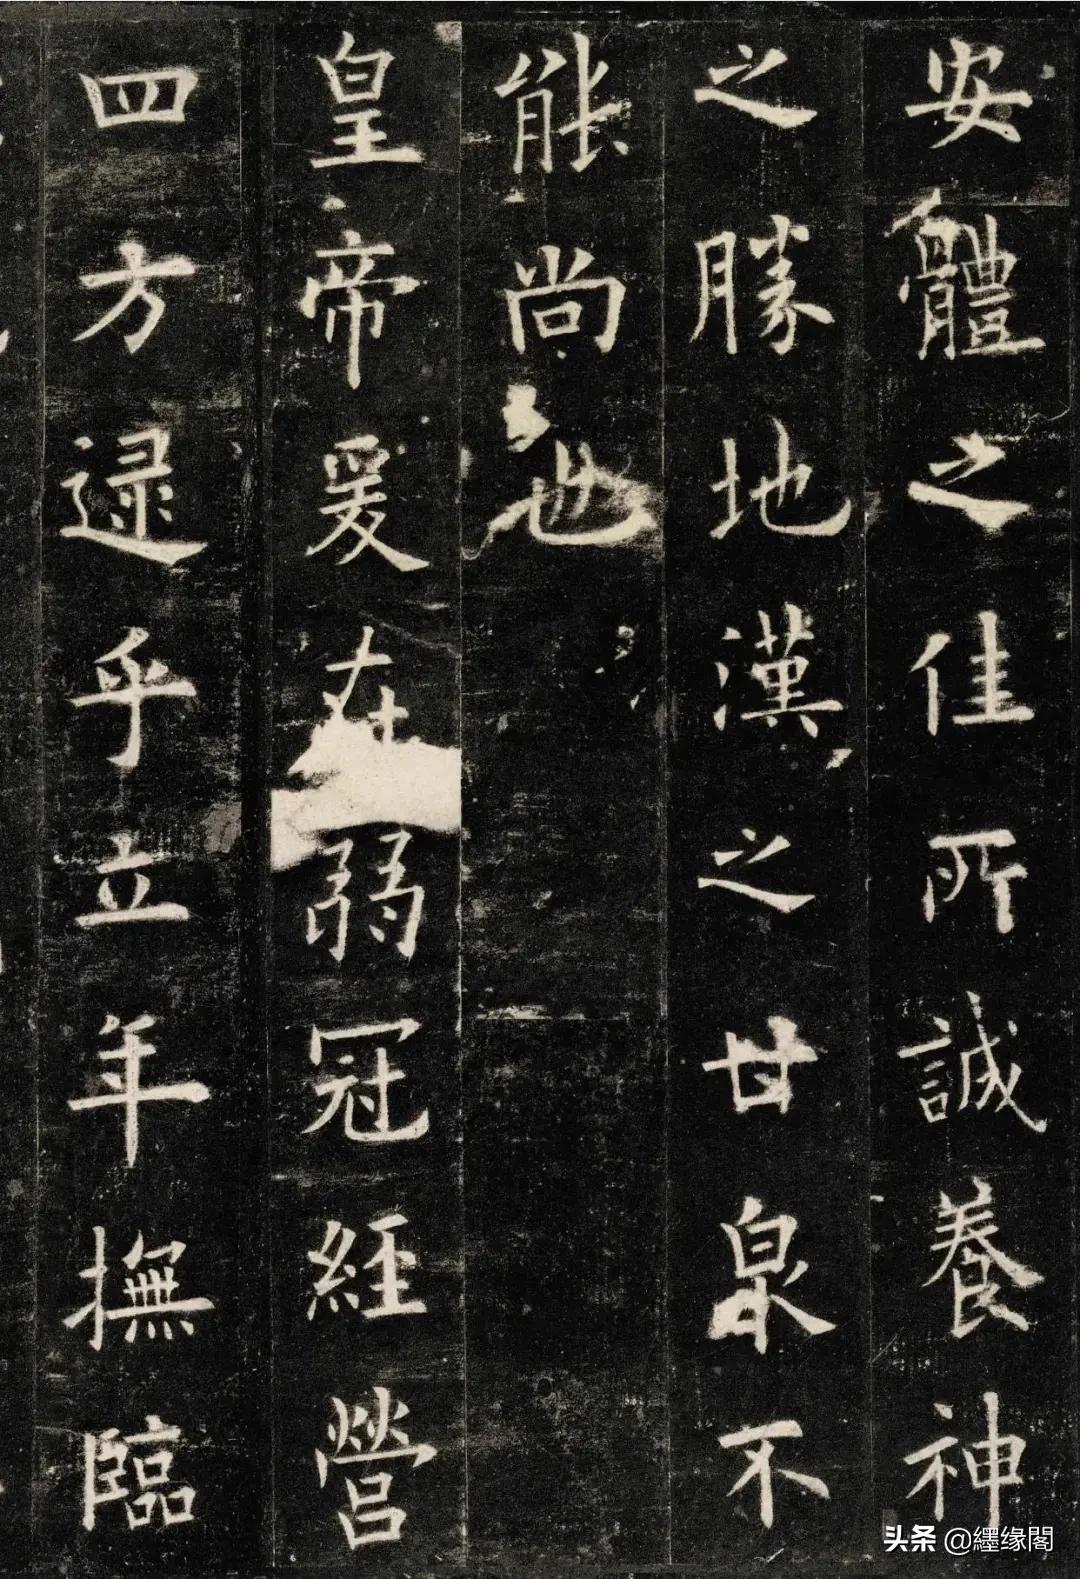 安體之佳所誠養神
之勝地漢之甘泉不
能尚也
皇帝爰在弱冠經營
四方逯乎立年撫臨
头条 @纆缘閣